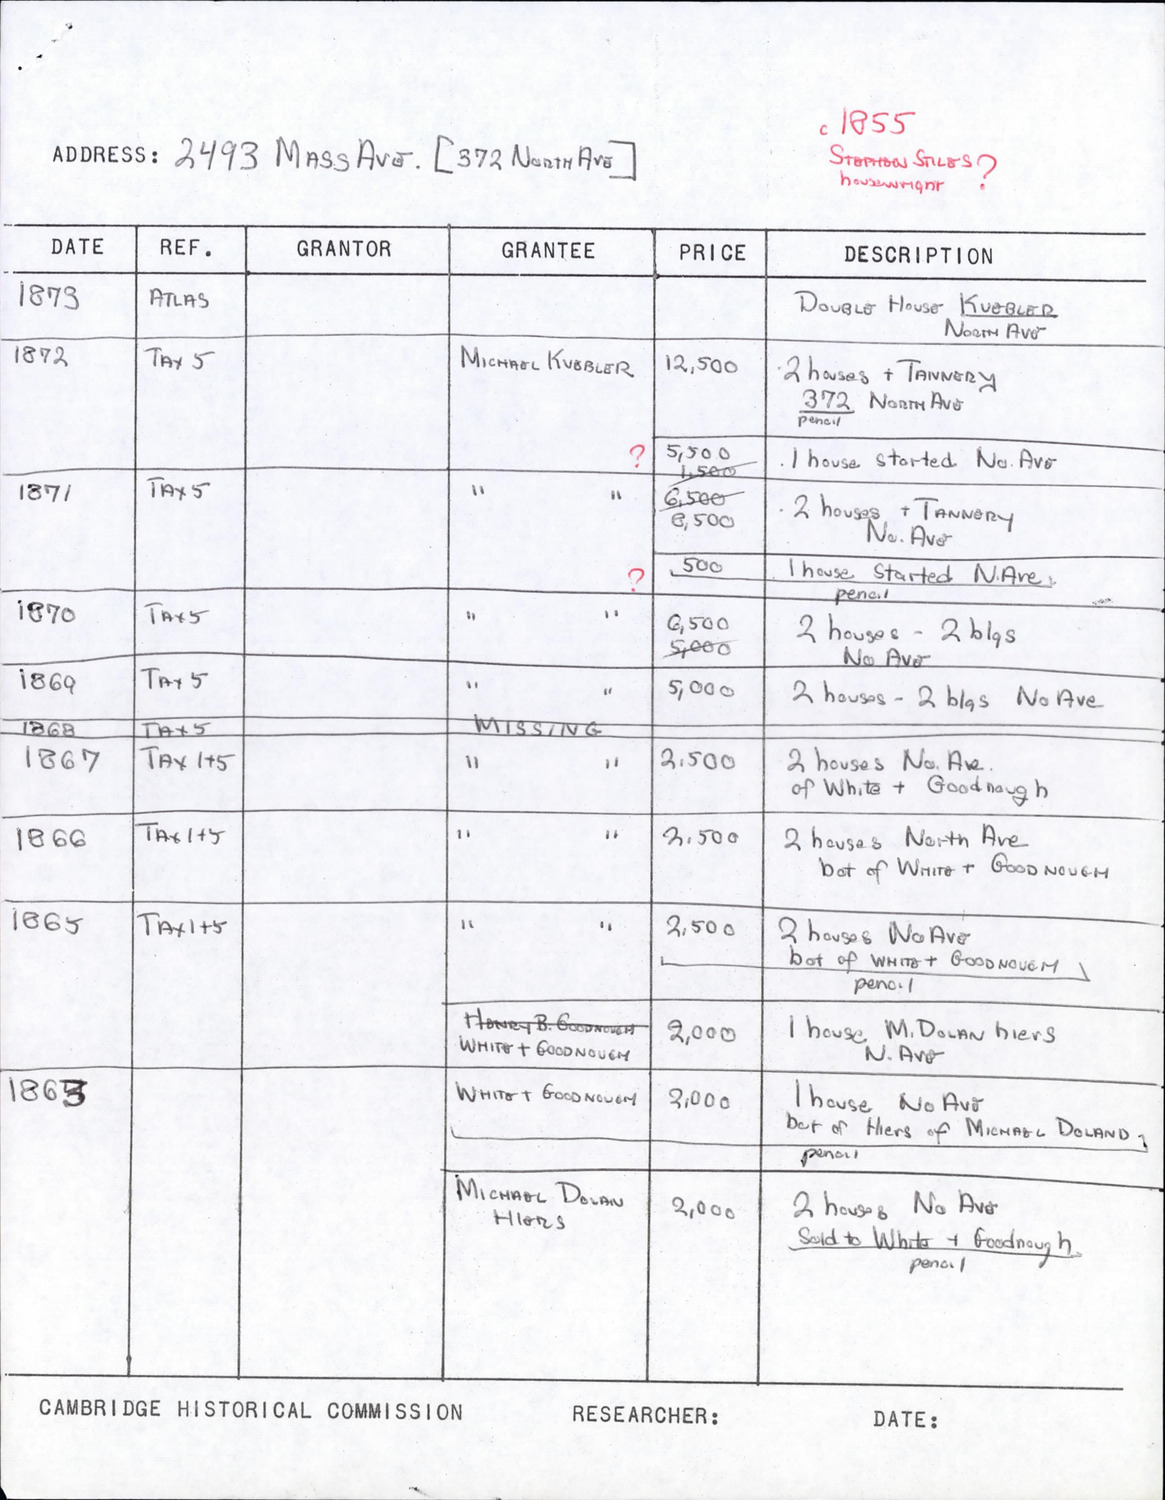 c 1855
STEPHEN STILES ?
housewright
ADDRESS: 2493 MASS AVE. [372 NORTH AVE]
DATE REF. GRANTOR GRANTEE PRICE DESCRIPTION
1873 ATLAS DOUBLE HOUSE KUEBLER
NORTH AVE
1872 TAX 5 MICHAEL KUEBLER 12,500 2 houses + TANNERY
372 NORTH AVE
pencil
? 5,500 1 house started No. AVE
1,500
1871 TAX 5 " " 6,500 2 houses + TANNERY
8,500 No. AVE
? 500 1 house started N. Ave.
pencil
1870 TAX 5 " " 6,500 2 houses - 2 blgs
5,000 No AVE
1869 TAX 5 " " 5,000 2 houses - 2 blgs No Ave
1868 TAX 5 MISSING
1867 TAX 1+5 " " 2,500 2 houses No. Ave.
of White + Goodnough
1866 TAX 1+5 " " 2,500 2 houses North Ave
bot of WHITE + GOODNOUGH
1865 TAX 1+5 " " 2,500 2 houses No AVE
bot of WHITE + GOODNOUGH
pencil
HENRY B. GOODNOUGH
WHITE + GOODNOUGH 2,000 1 house M. DOLAN hiers
N. AVE
1863 WHITE + GOODNOUGH 2,000 1 house No AVE
bot of Hiers of MICHAEL DOLAND
pencil
MICHAEL DOLAN 2,000 2 houses No AVE
HIERS Sold to White + Goodnough
pencil
CAMBRIDGE HISTORICAL COMMISSION RESEARCHER: DATE: